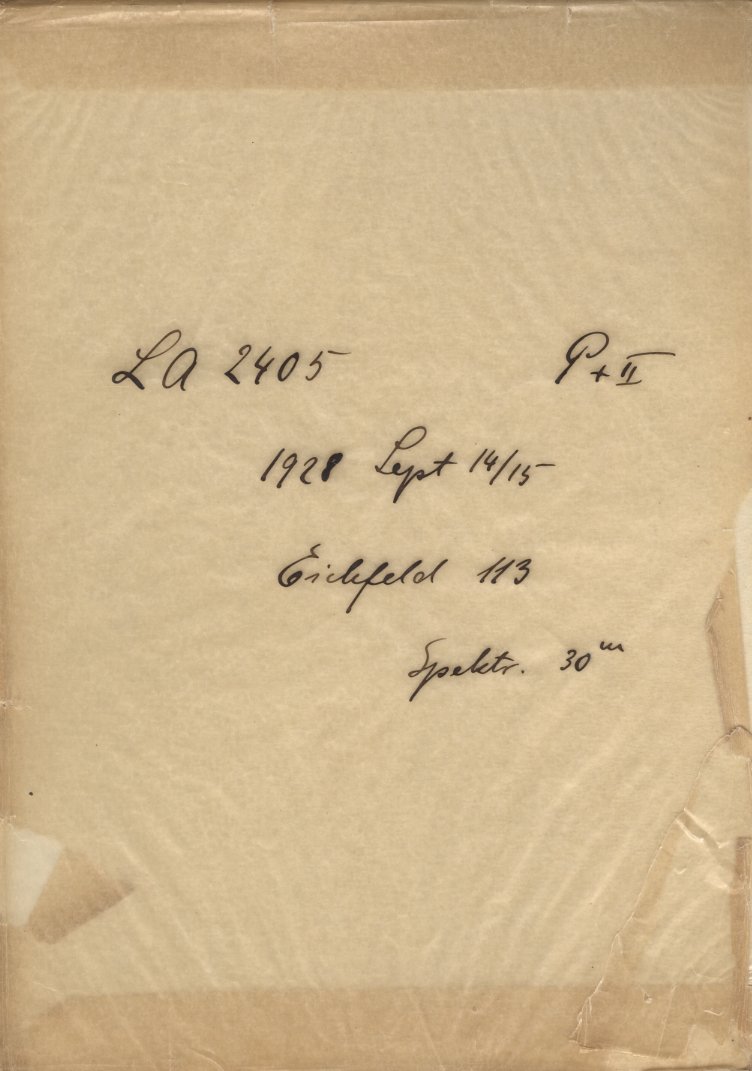 LA 2405 P + II
1928 Sept 14/15
Eichfeld 113
Spektr. 30ᵐ